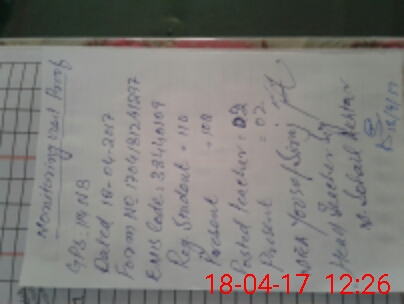 Monitoring visit Proof
GPS: 114 NB
Dated 18-04-2017
Form NO 17041812
EMIS Code: 38440109
Reg Student = 110
Present = 108
Posted teacher = 02
Present = 02
MEA Yousaf
Head teacher
M. Sohail Akhtar
18-04-17 12:26